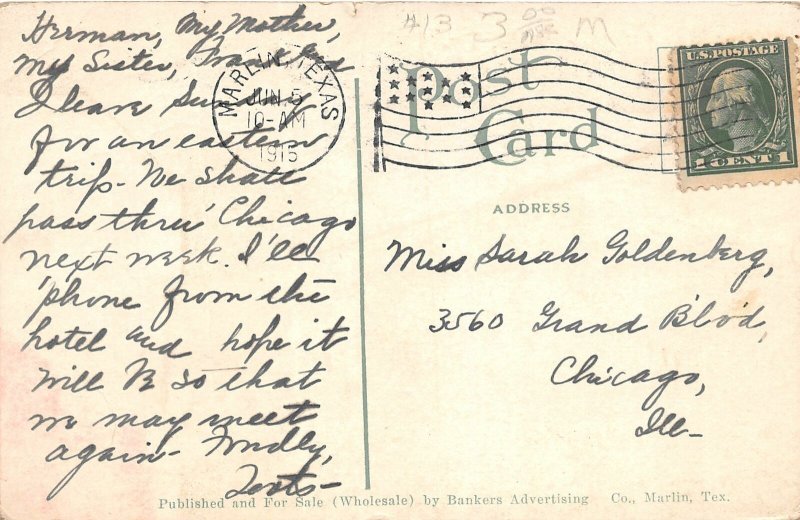 Herman, My Mother,
My Sister, and
I leave Sunday
for an eastern
trip - We shall
pass thru' Chicago
next week. I'll
'phone from the
hotel and hope it
will be so that
we may meet
again - Fondly,
413 3 00 M
MARLIN, TEXAS
JUN 5
10-AM
1915
U.S. POSTAGE
1 CENT 1
Post
Card
ADDRESS
Miss Sarah Goldenberg,
3560 Grand B'lv'd,
Chicago,
Ill-
Published and For Sale (Wholesale) by Bankers Advertising Co., Marlin, Tex.